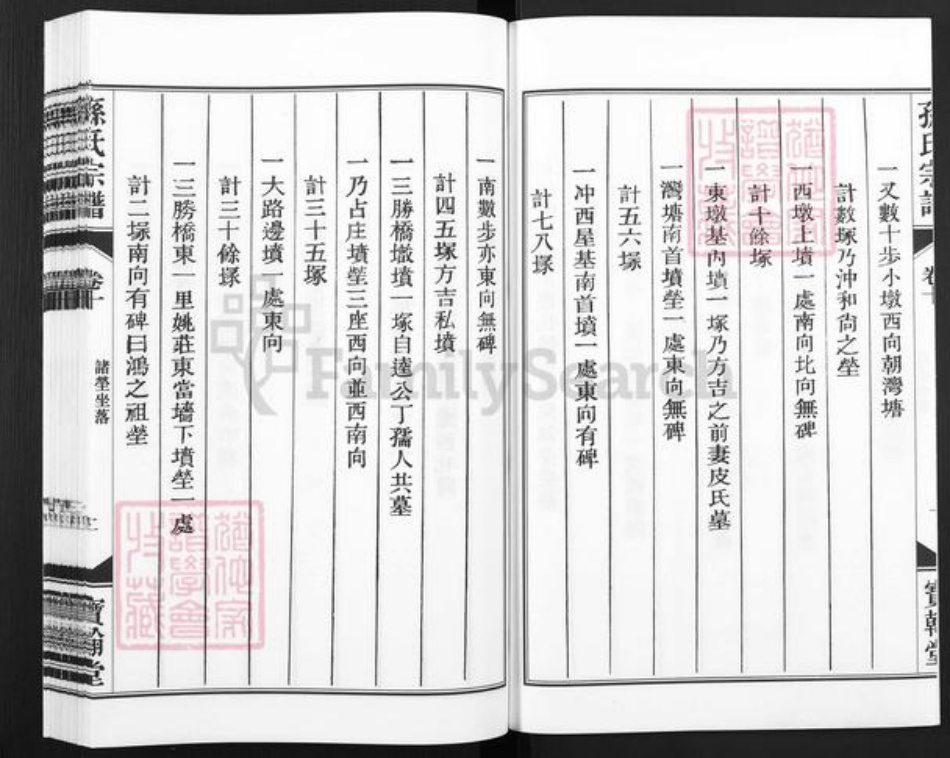 孫氏宗譜
卷一
寶翰堂
一又數十步小墩西向朝灣塘
計數塚乃沖和尙之塋
一西墩上墳一處南向北向無碑
計十餘塚
一東墩基內墳一塚乃方吉之前妻皮氏墓
一灣塘南首墳塋一處東向無碑
計五六塚
一冲西屋基南首墳一處東向有碑
計七八塚
一南數步亦東向無碑
計四五塚方吉私墳
一三勝橋墩墳一塚自達公丁孺人共墓
一乃占庄墳塋三座西向並西南向
計三十五塚
一大路邊墳一處東向
計三十餘塚
一三勝橋東一里姚莊東當墻下墳塋一處
計二塚南向有碑曰鴻之祖塋
孫氏宗譜
卷一
諸塋坐落
寶翰堂
FamilySearch